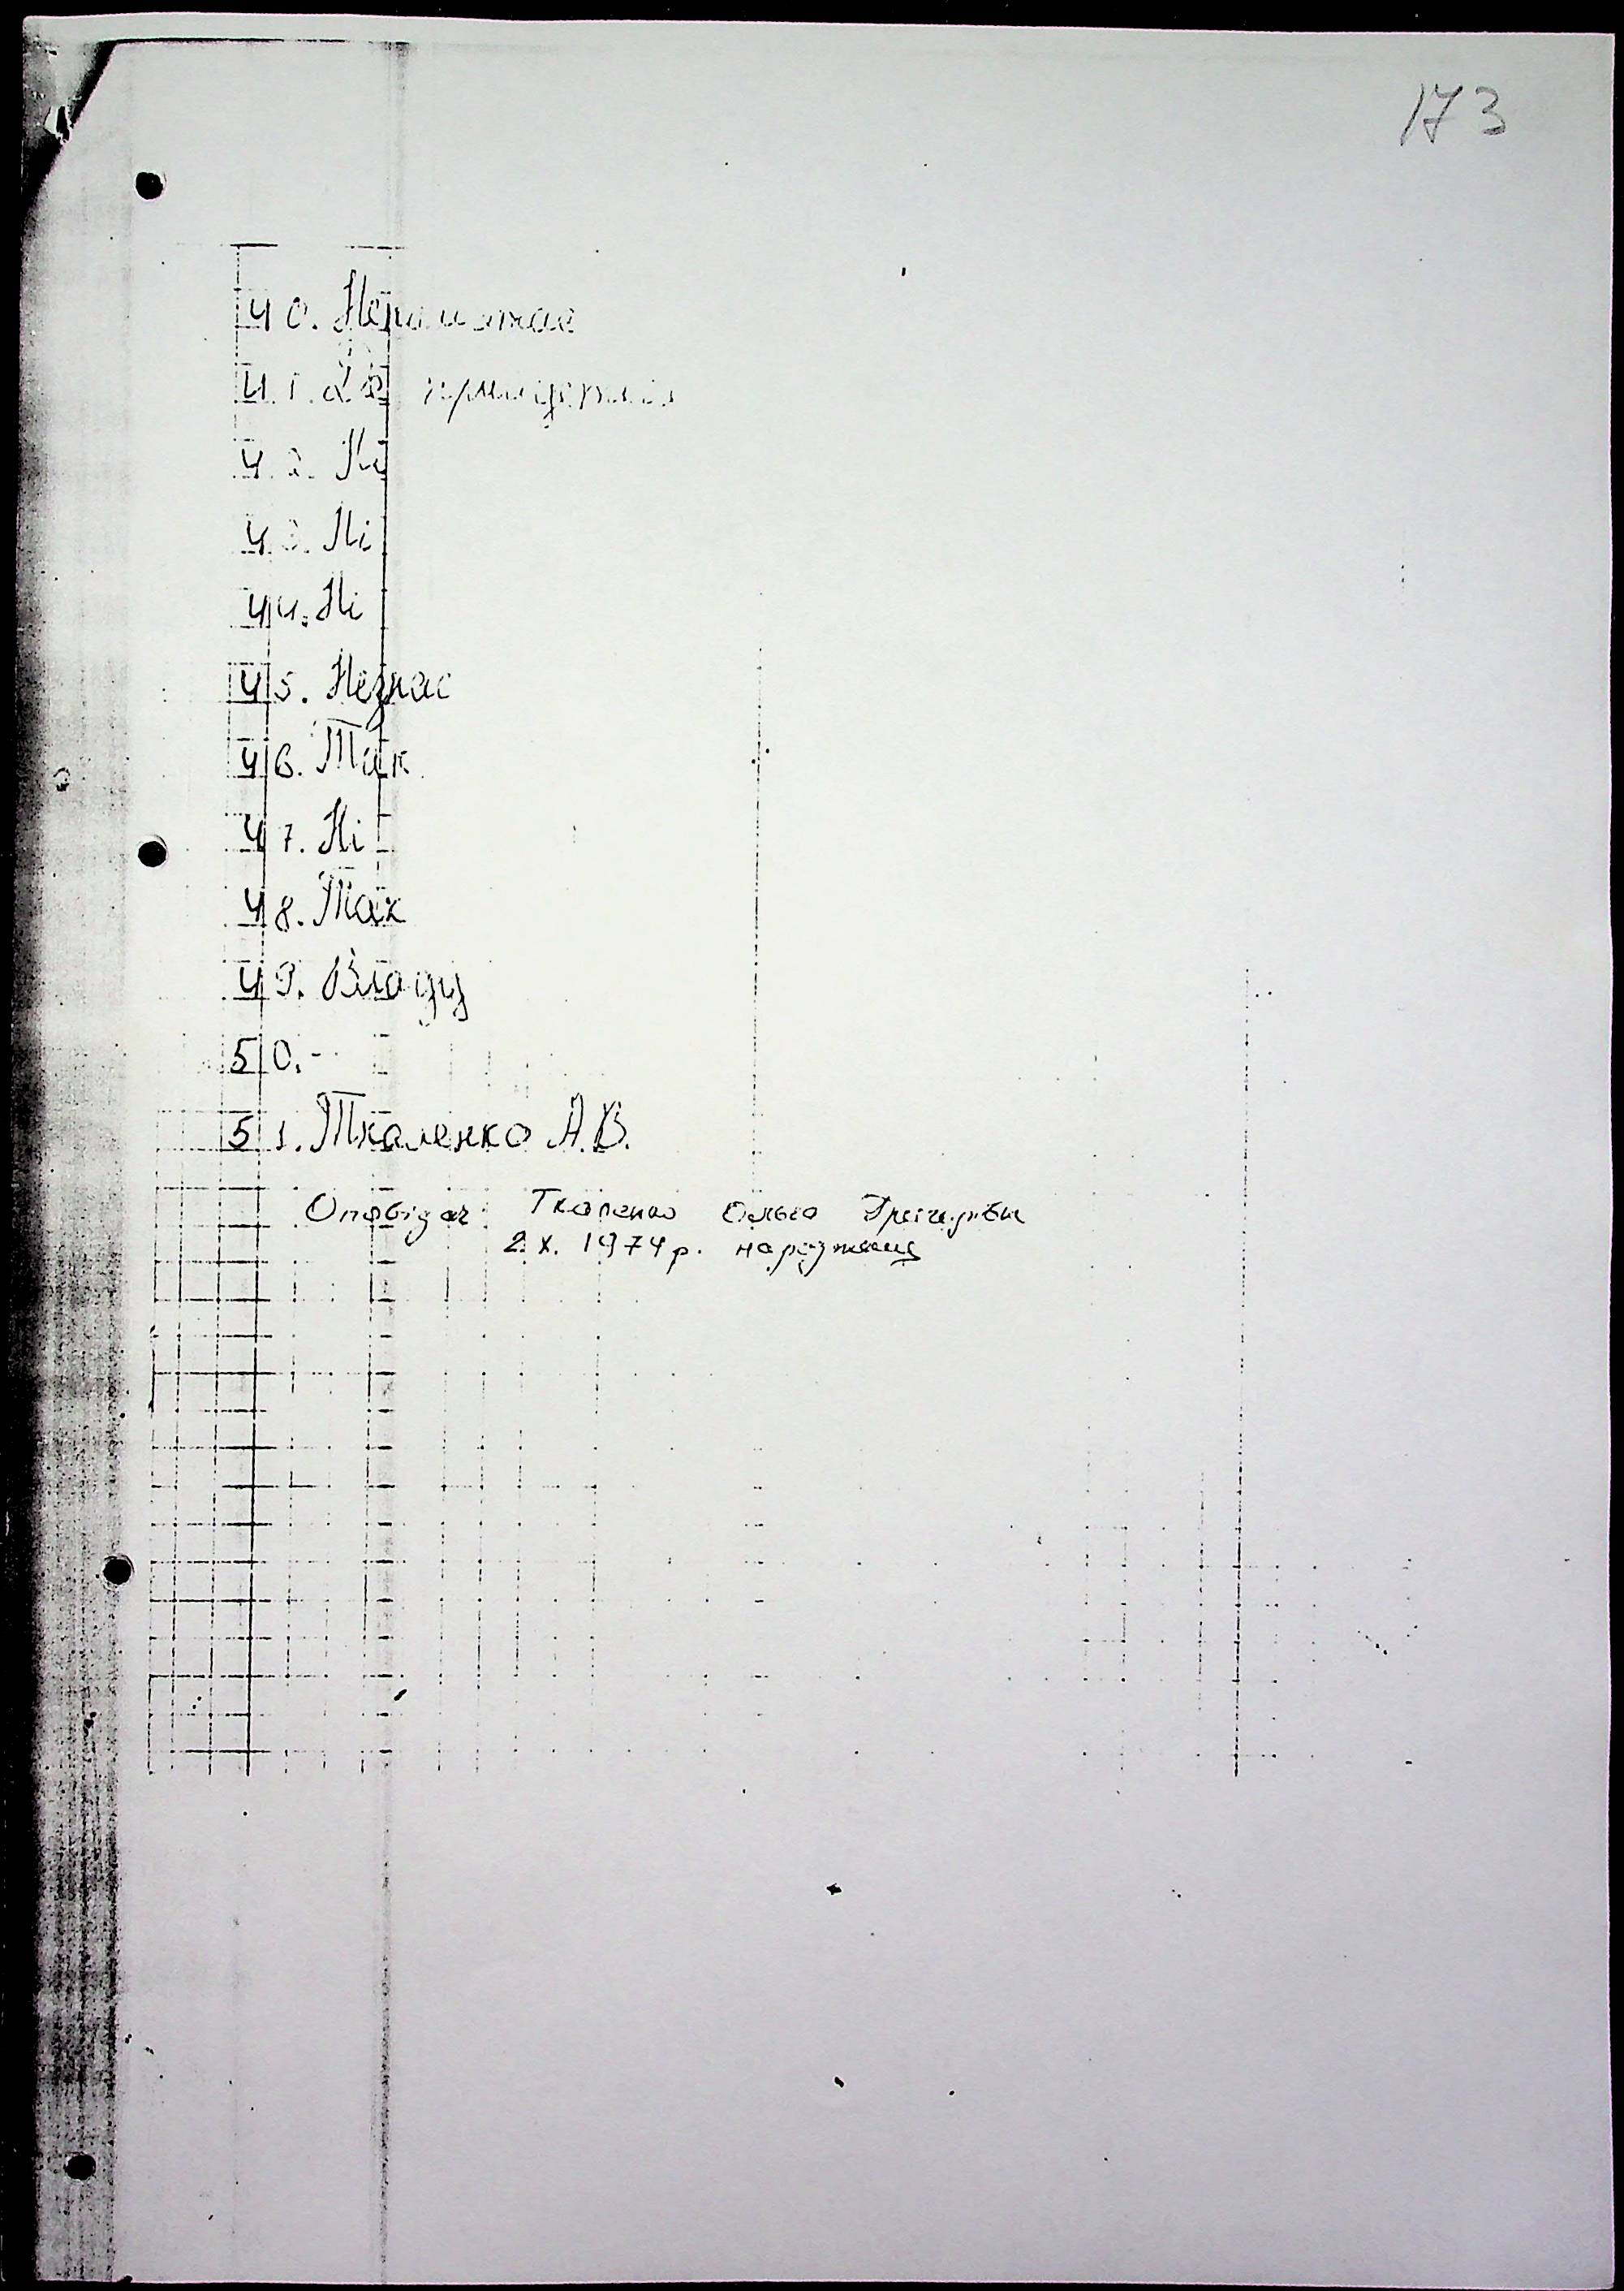 173
40. Непамятає
41.
42. Ні
43. Ні
44. Ні
45. Незнає
46. Так
47. Ні
48. Так
49. Владу
50. -
51. Ткаленко А.В.
Оповідач Ткаленко Ольга
2. X. 1974 р. народження